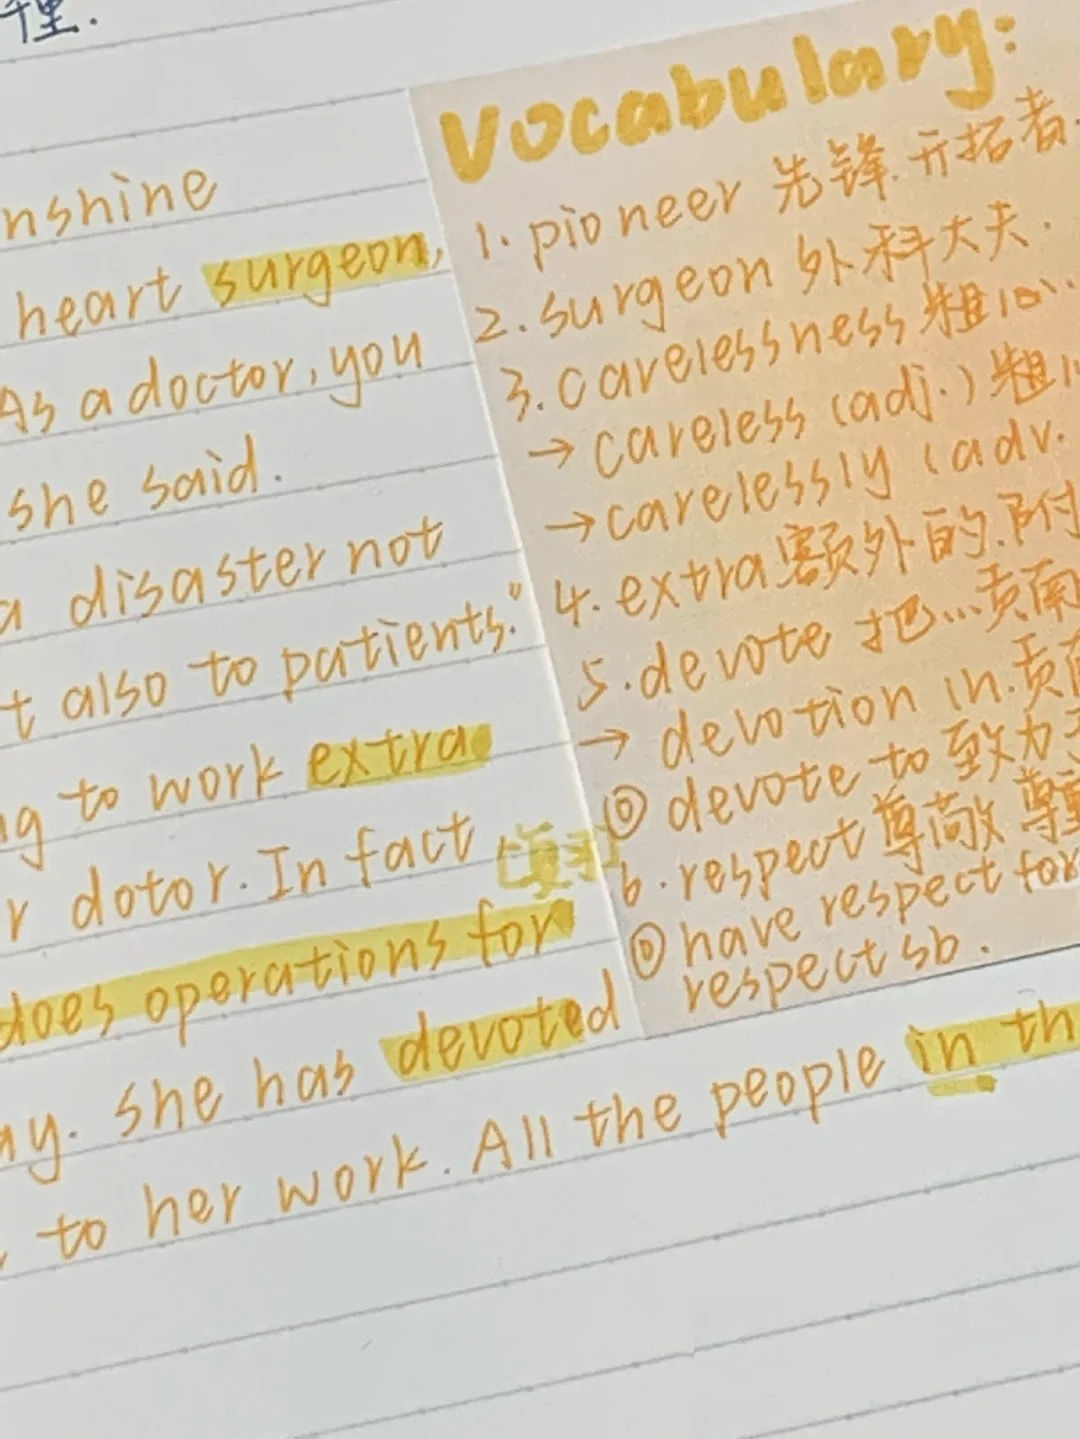 nshine
heart surgeon,
As a doctor, you
she said.
a disaster not
t also to patients."
ng to work extra
r dotor. In fact,
does operations for
ay. she has devoted
to her work. All the people in th
Vocabulary:
1. pioneer 先锋. 开拓者.
2. surgeon 外科大夫.
3. carelessness 粗心
→ careless (adj.) 粗
→ carelessly (adv.
4. extra 额外的.附
5. devote 把...贡献
→ devotion (n.贡献
① devote to 致力于
6. respect 尊敬 尊重
① have respect for
respect sb.